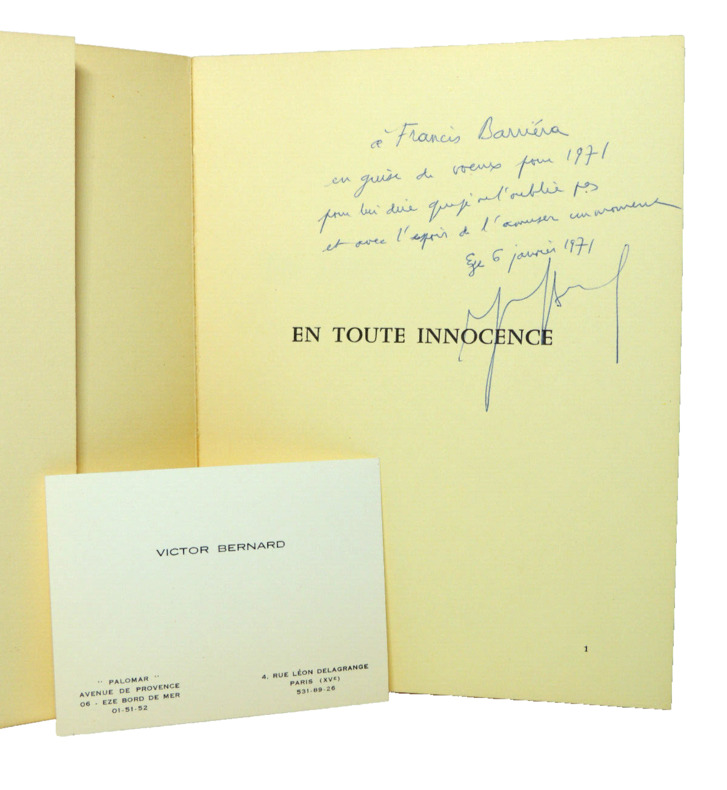 à Francis Barriéra
en guise de voeux pour 1971
pour lui dire que je ne l'oublie pas
et avec l'espoir de l'amuser un moment
Eze 6 janvier 1971
EN TOUTE INNOCENCE
1
VICTOR BERNARD
" PALOMAR "
AVENUE DE PROVENCE
06 - EZE BORD DE MER
01-51-52
4, RUE LÉON DELAGRANGE
PARIS (XVᵉ)
531-89-26